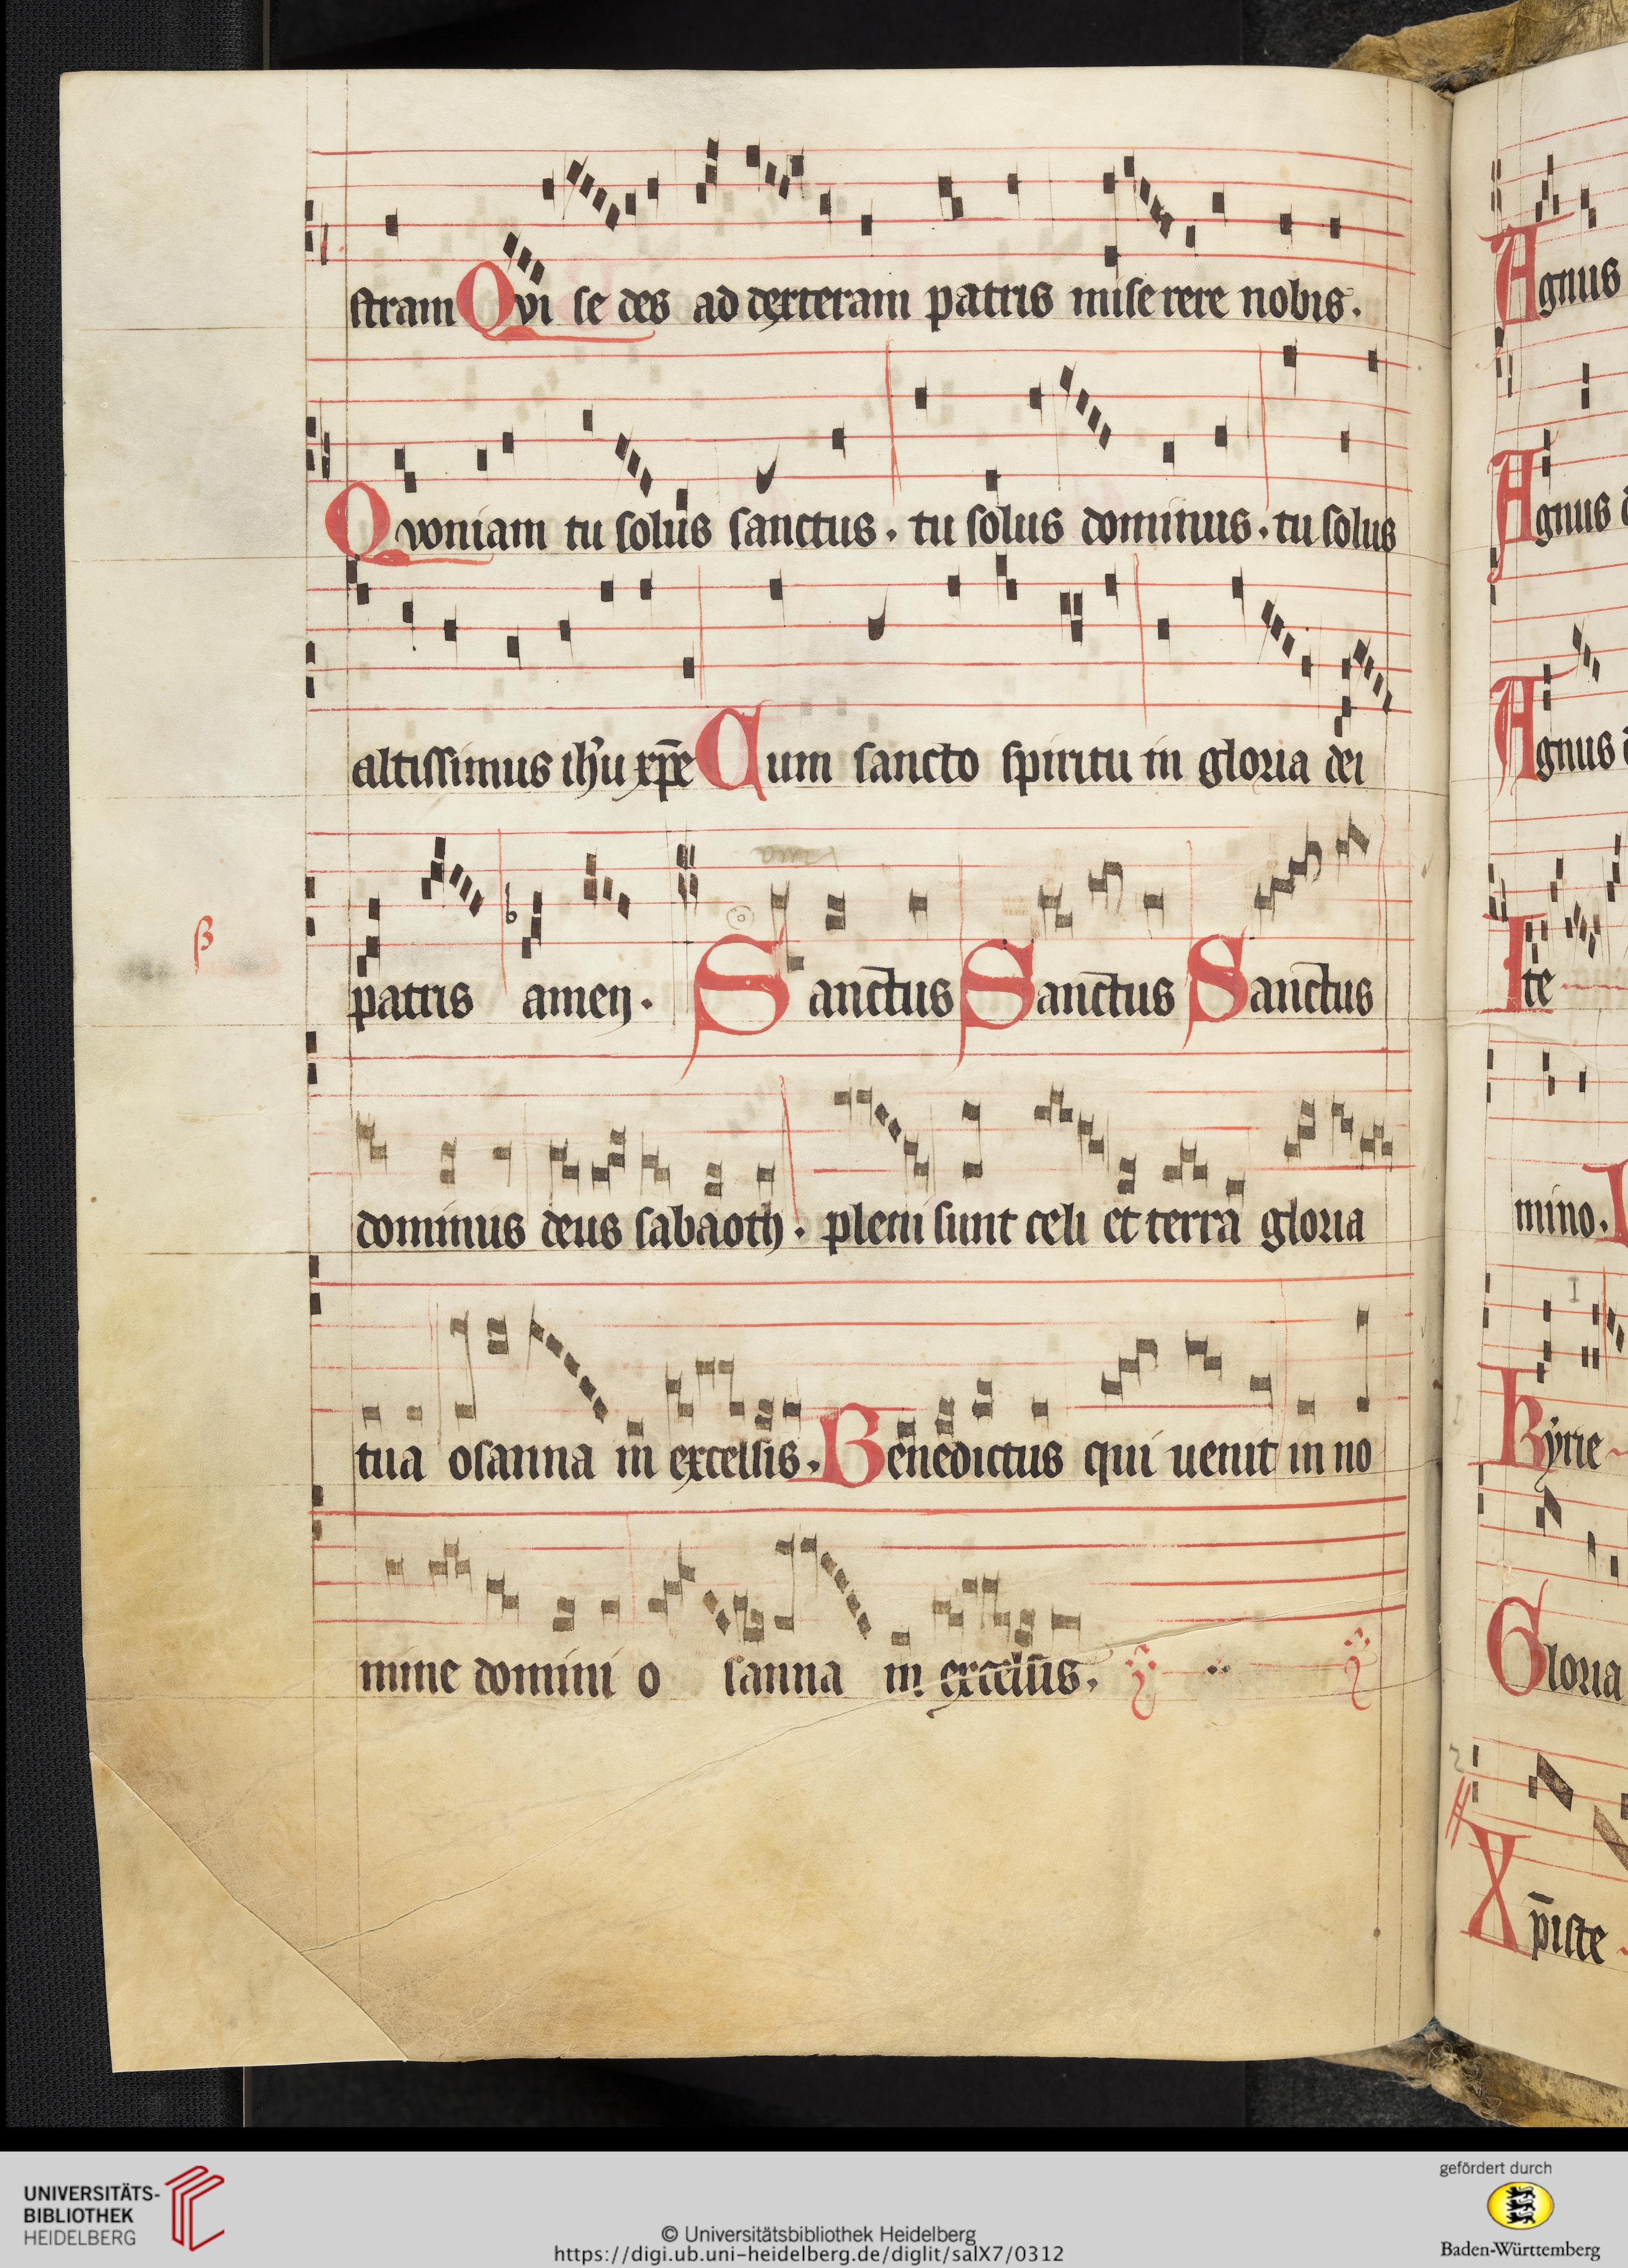 stram Qvi se des ad dexteram patris mise rere nobis.
Qvoniam tu solus sanctus. tu solus dominus. tu solus
altissimus ih'u xp̄e Cum sancto spiritu in gloria dei
patris amen. Sanctus Sanctus Sanctus
dominus deus sabaoth. pleni sunt celi et terra gloria
tua osanna in excelsis. Benedictus qui uenit in no
mine domini o sanna in excelsis.
ß
Agnus
Agnus d
Agnus d
Ite
mino. I
Kyrie
Gloria
Xp̄iste
1
2
UNIVERSITÄTS-
BIBLIOTHEK
HEIDELBERG
© Universitätsbibliothek Heidelberg
https://digi.ub.uni-heidelberg.de/diglit/salX7/0312
gefördert durch
Baden-Württemberg